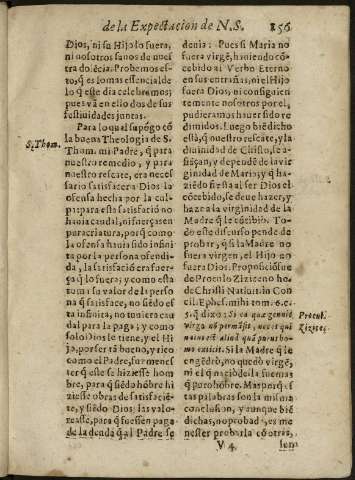 de la Expectacion de N.S. 156
Dios, ni su Hijo lo fuera,
ni nosotros sanos de nuestra
dolēcia. Probemos esto,
q̄ es lo mas essencial de
lo q̄ este dia celebramos;
pues vā en ello dos de sus
festiuidades juntas.
Para lo qual supōgo cō
la buena Theologia de S.
Thom. mi Padre, q̄ para
nuestro remedio, y para
nuestro rescate, era necessario
satisfacer a Dios la
ofensa hecha por la culpa:
para esta satisfació no
hauia caudal, ni fuerças en
pura criatura, porq̄ como
la ofensa hauia sido infinita
por la persona ofendida,
la satisfació era fuerça
q̄ lo fuera; y como esta
toma su valor de la persona
q̄ satisface, no siēdo estā
infinita, no tuuiera caudal
para la paga; y como
solo Dios le tiene, y el Hijo,
por ser tā bueno, y rico
como el Padre, fue menester
q̄ este se hiziesse hombre,
para q̄ siēdo hōbre hiziesse
obras de satisfaciē,
y siēdo Dios las valoreasse,
para q̄ fuessen paga
de la deuda q̄ al Padre se
S. Thom.
deuia: Pues si Maria no
fuera virgē, hauiendo cōcebido
al Verbo Eterno
en sus entrañas, ni el Hijo
fuera Dios, ni consiguientemente
nosotros por el,
pudieramos hauer sido redimidos.
Luego biē dicho
està, q̄ nuestro rescate, y la
diuinidad de Christo, se afiāçan,
y dependē de la virginidad
de Maria; y q̄ haziēdo
fiesta al ser Dios el
cōcebido, se deue hazer, y
haze a la virginidad de la
Madre q̄ le cōcibio. Todo
este discurso pende de
probar, q̄ si la Madre no
fuera virgen, el Hijo no
fuera Dios. Proposiciō fue
de Proculo Ziziceno hom.
de Christi Natiuit. in Concil.
Ephes. mihi tom. 6. c.
5. q̄ dixo: Si ea quæ genuit
virgo nō permāsit, nec is qui
natus est aliud quā purus homo
exitit. Si la Madre q̄ le
engēdrò, no quedò virgē,
ni el q̄ naciò de la fue mas
q̄ puro hōbre. Mas porq̄ estas
palabras son la misma
conclusion, y aunque biē
dichas, no probada, es menester
probarla cō otras,
Procul.
Zizice.
V 4